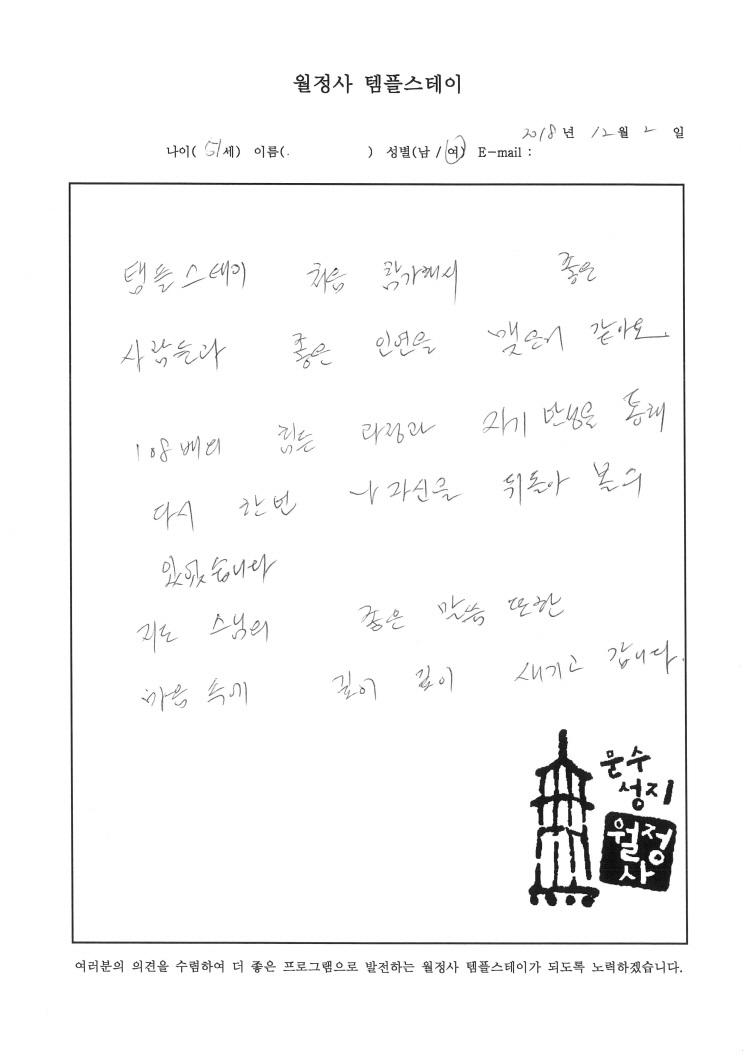 월정사 템플스테이
2018년 12월 2일
나이( 51세) 이름(. ) 성별(남 / 여) E-mail :
탬플스테이 처음 참가해서 좋은
사람들과 좋은 인연을 맺은거 같아요.
108배의 힘든 과정과 자기 반성을 통해
다시 한번 나 자신을 뒤돌아 볼 수
있었습니다
지도 스님의 좋은 말씀 또한
마음 속에 깊이 깊이 새기고 갑니다.
문수
성지
월정
사
여러분의 의견을 수렴하여 더 좋은 프로그램으로 발전하는 월정사 템플스테이가 되도록 노력하겠습니다.